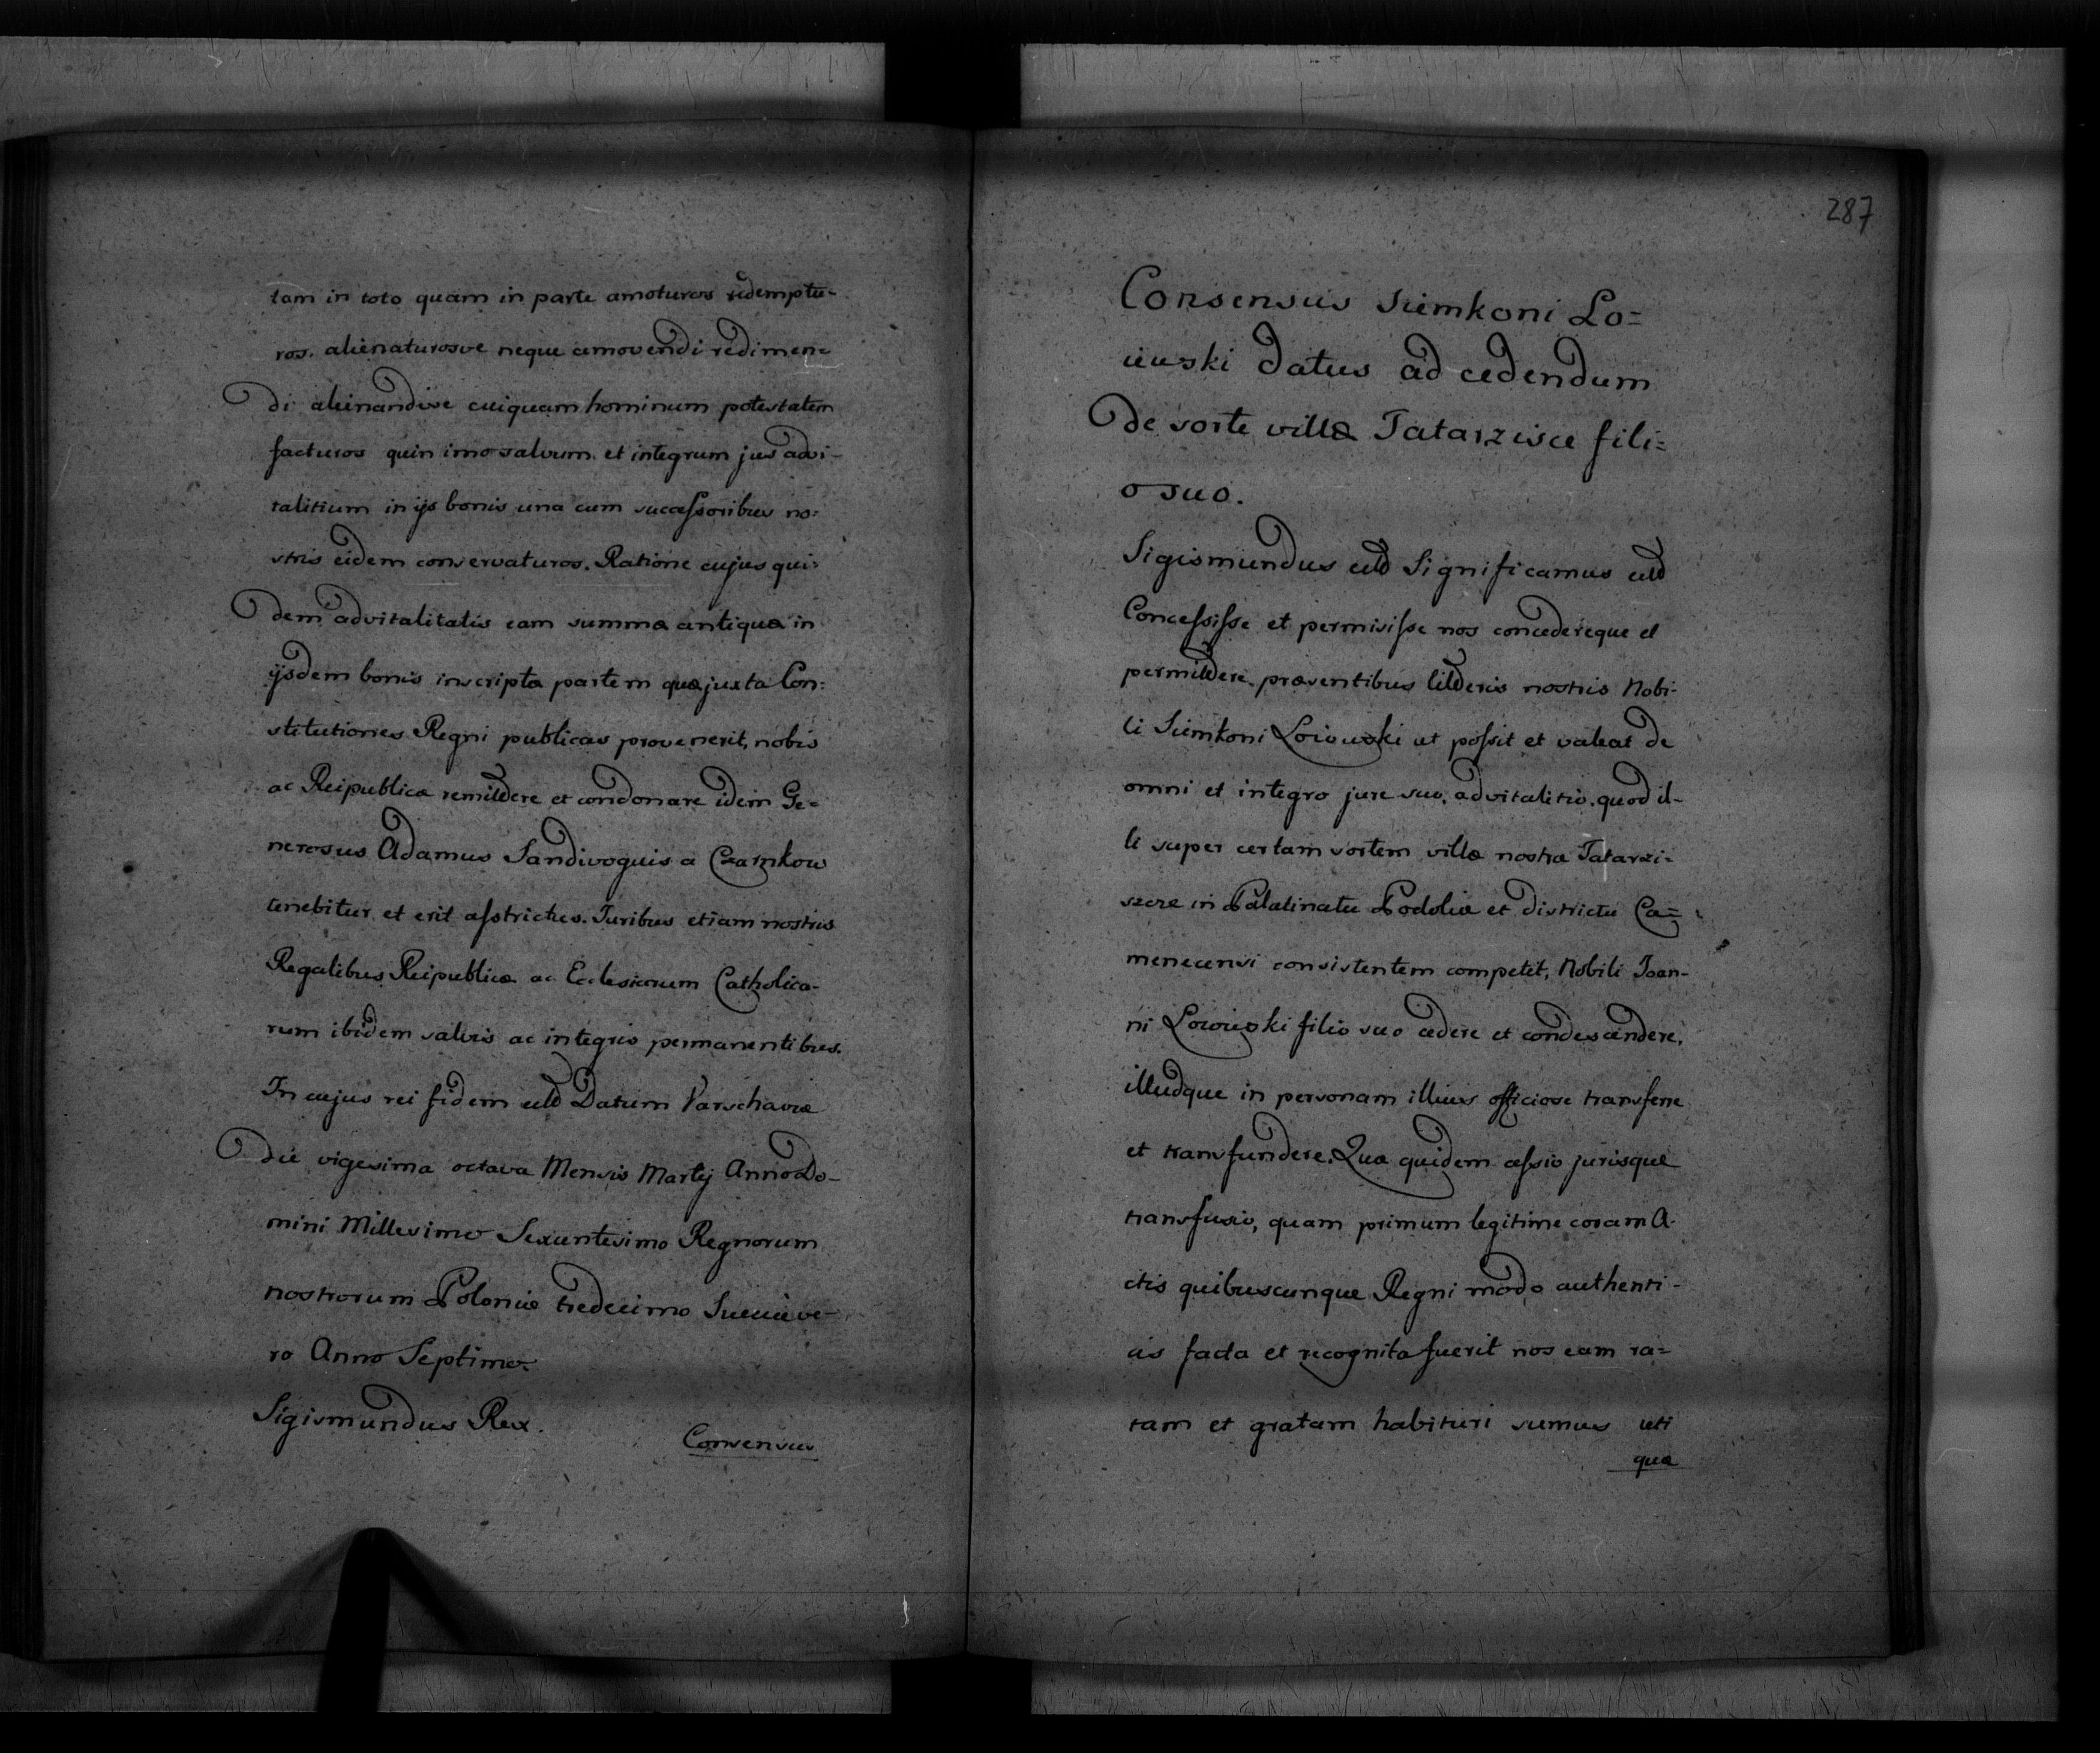 tam in toto quam in parte amoturos redemptu-
ros. alienaturosve neque amovendi redimen-
di alienandive cuiquam hominum potestatem
facturos quin imo salvum et integrum jus advi-
talitium in ijs bonis una cum successoribus no-
stris eidem conservaturos. Ratione cujus qui-
dem advitalitatis eam summæ antiquæ in
ijsdem bonis inscriptæ partem quæ juxta Con-
stitutiones Regni publicas provenerit, nobis
ac Reipublicæ remittere et condonare idem Ge-
nerosus Adamus Sandivoguis a Czarnkow
tenebitur et erit astrictus. Juribus etiam nostris
Regalibus Reipublicæ ac Ecclesiarum Catholica-
rum ibidem salvis ac integris permanentibus.
In cujus rei fidem etc Datum Varschaviæ
die vigesima octava Mensis Martij Anno Do-
mini Millesimo Sexcentesimo Regnorum
nostrorum Poloniæ tredecimo Sueciæ ve-
ro Anno Septimo.
Sigismundus Rex.
Consensus
287
Consensus Siemkoni Lo=
iewski datus ad cedendum
de sorte villæ Tatarzisce fili=
o suo.
Sigismundus etc Significamus etc
Concessisse et permisisse nos concedereque et
permittere præsentibus litteris nostris Nobi-
li Siemkoni Loiowski ut possit et valeat de
omni et integro jure suo, advitalitio, quod il-
li super certam sortem villæ nostræ Tatarzi-
szcze in Palatinatu Podoliæ et districtu Ca=
menecensi consistentem competit, Nobili Joan-
ni Loiowski filio suo cedere et condescendere,
illudque in personam illius officiose transferre
et transfundere. Quæ quidem cessio jurisque
transfusio, quam primum legitime coram A-
ctis quibuscunque Regni modo authenti-
cis facta et recognita fuerit nos eam ra=
tam et gratam habituri sumus uti
quæ